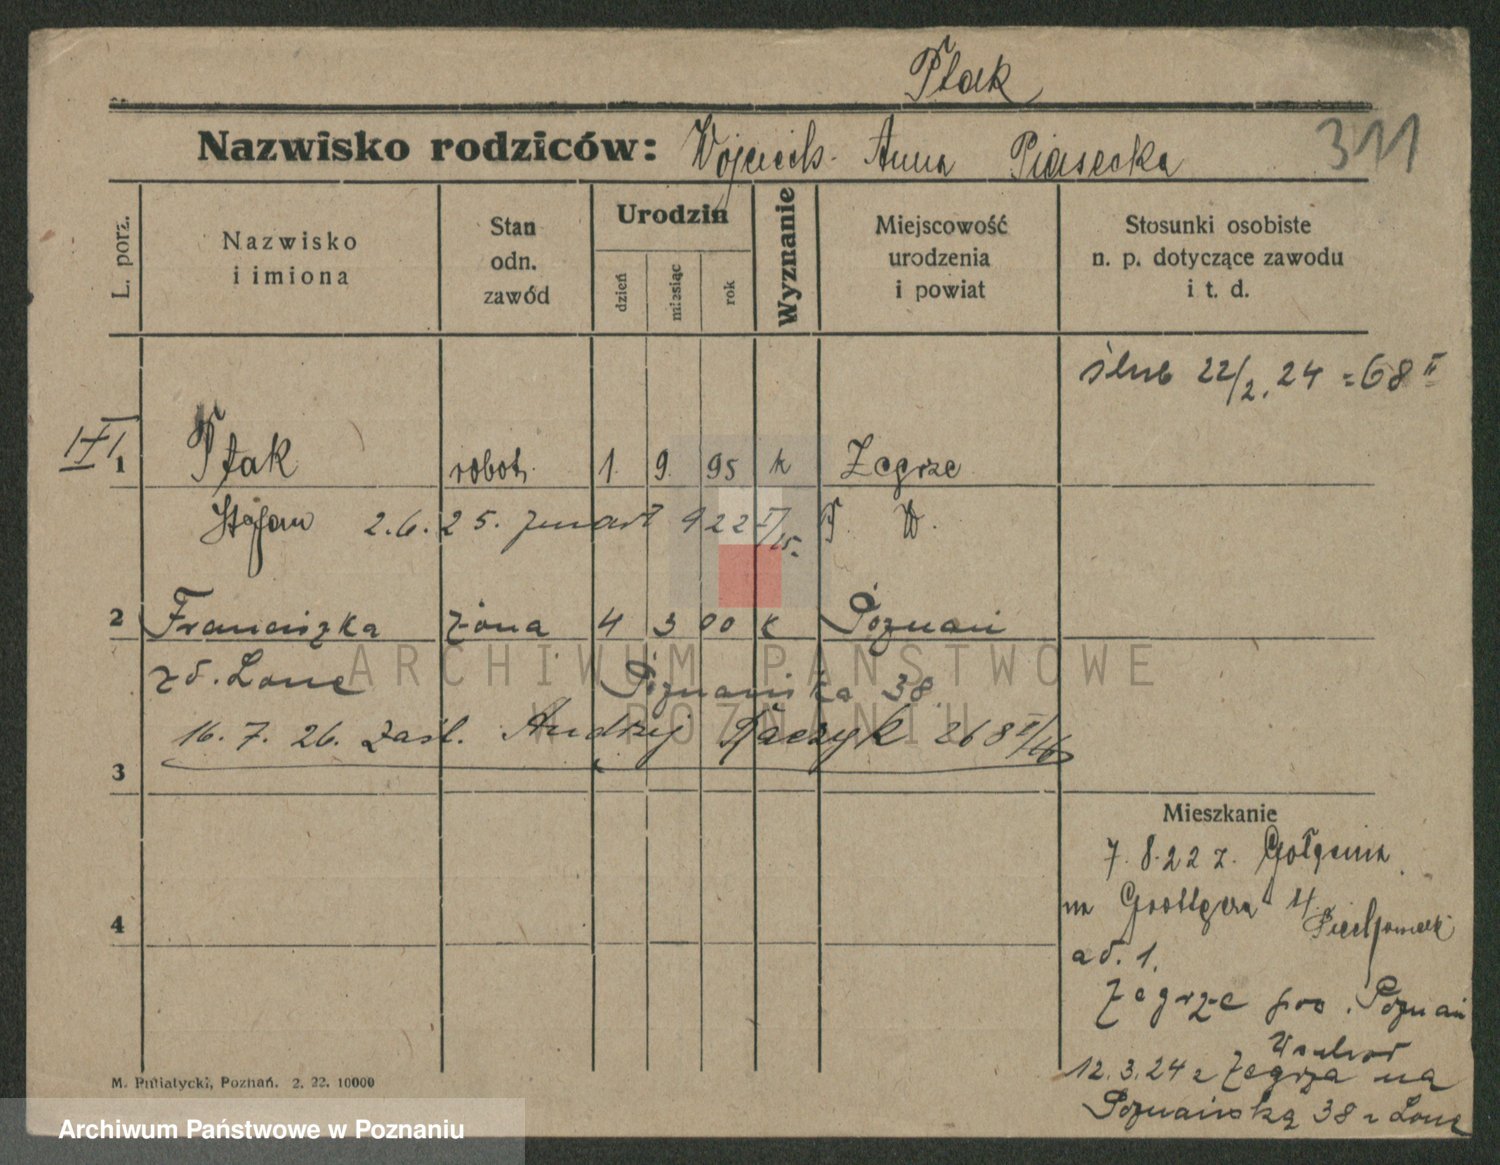 Ptak
Nazwisko rodziców: Wojciech. Anna Piasecka
311
L. porz.
Nazwisko
i imiona
Stan
odn.
zawód
Urodzin
dzień
miesiąc
rok
Wyznanie
Miejscowość
urodzenia
i powiat
Stosunki osobiste
n. p. dotyczące zawodu
i t. d.
ślub 22/2. 24 = 68 II
1 Ptak robot. 1. 9. 95 k Zegrze
Stefan 2.6.25. zmarł 922 I/25. P. W.
2 Franciszka żona 4 3 00 k Poznań
zd. Lone Poznańska 38
16. 7. 26. zaśl. Andrzej 268 II/26
3
4
Mieszkanie
7. 8. 22 z
na Grottgera 4
ad. 1.
Zegrze pow. Poznań
Wschod
12. 3. 24 z Zegrza na
Poznańską 38 z Lone
M. Putiatycki, Poznań. 2. 22. 10000
ARCHIWUM PAŃSTWOWE
W POZNANIU
Archiwum Państwowe w Poznaniu